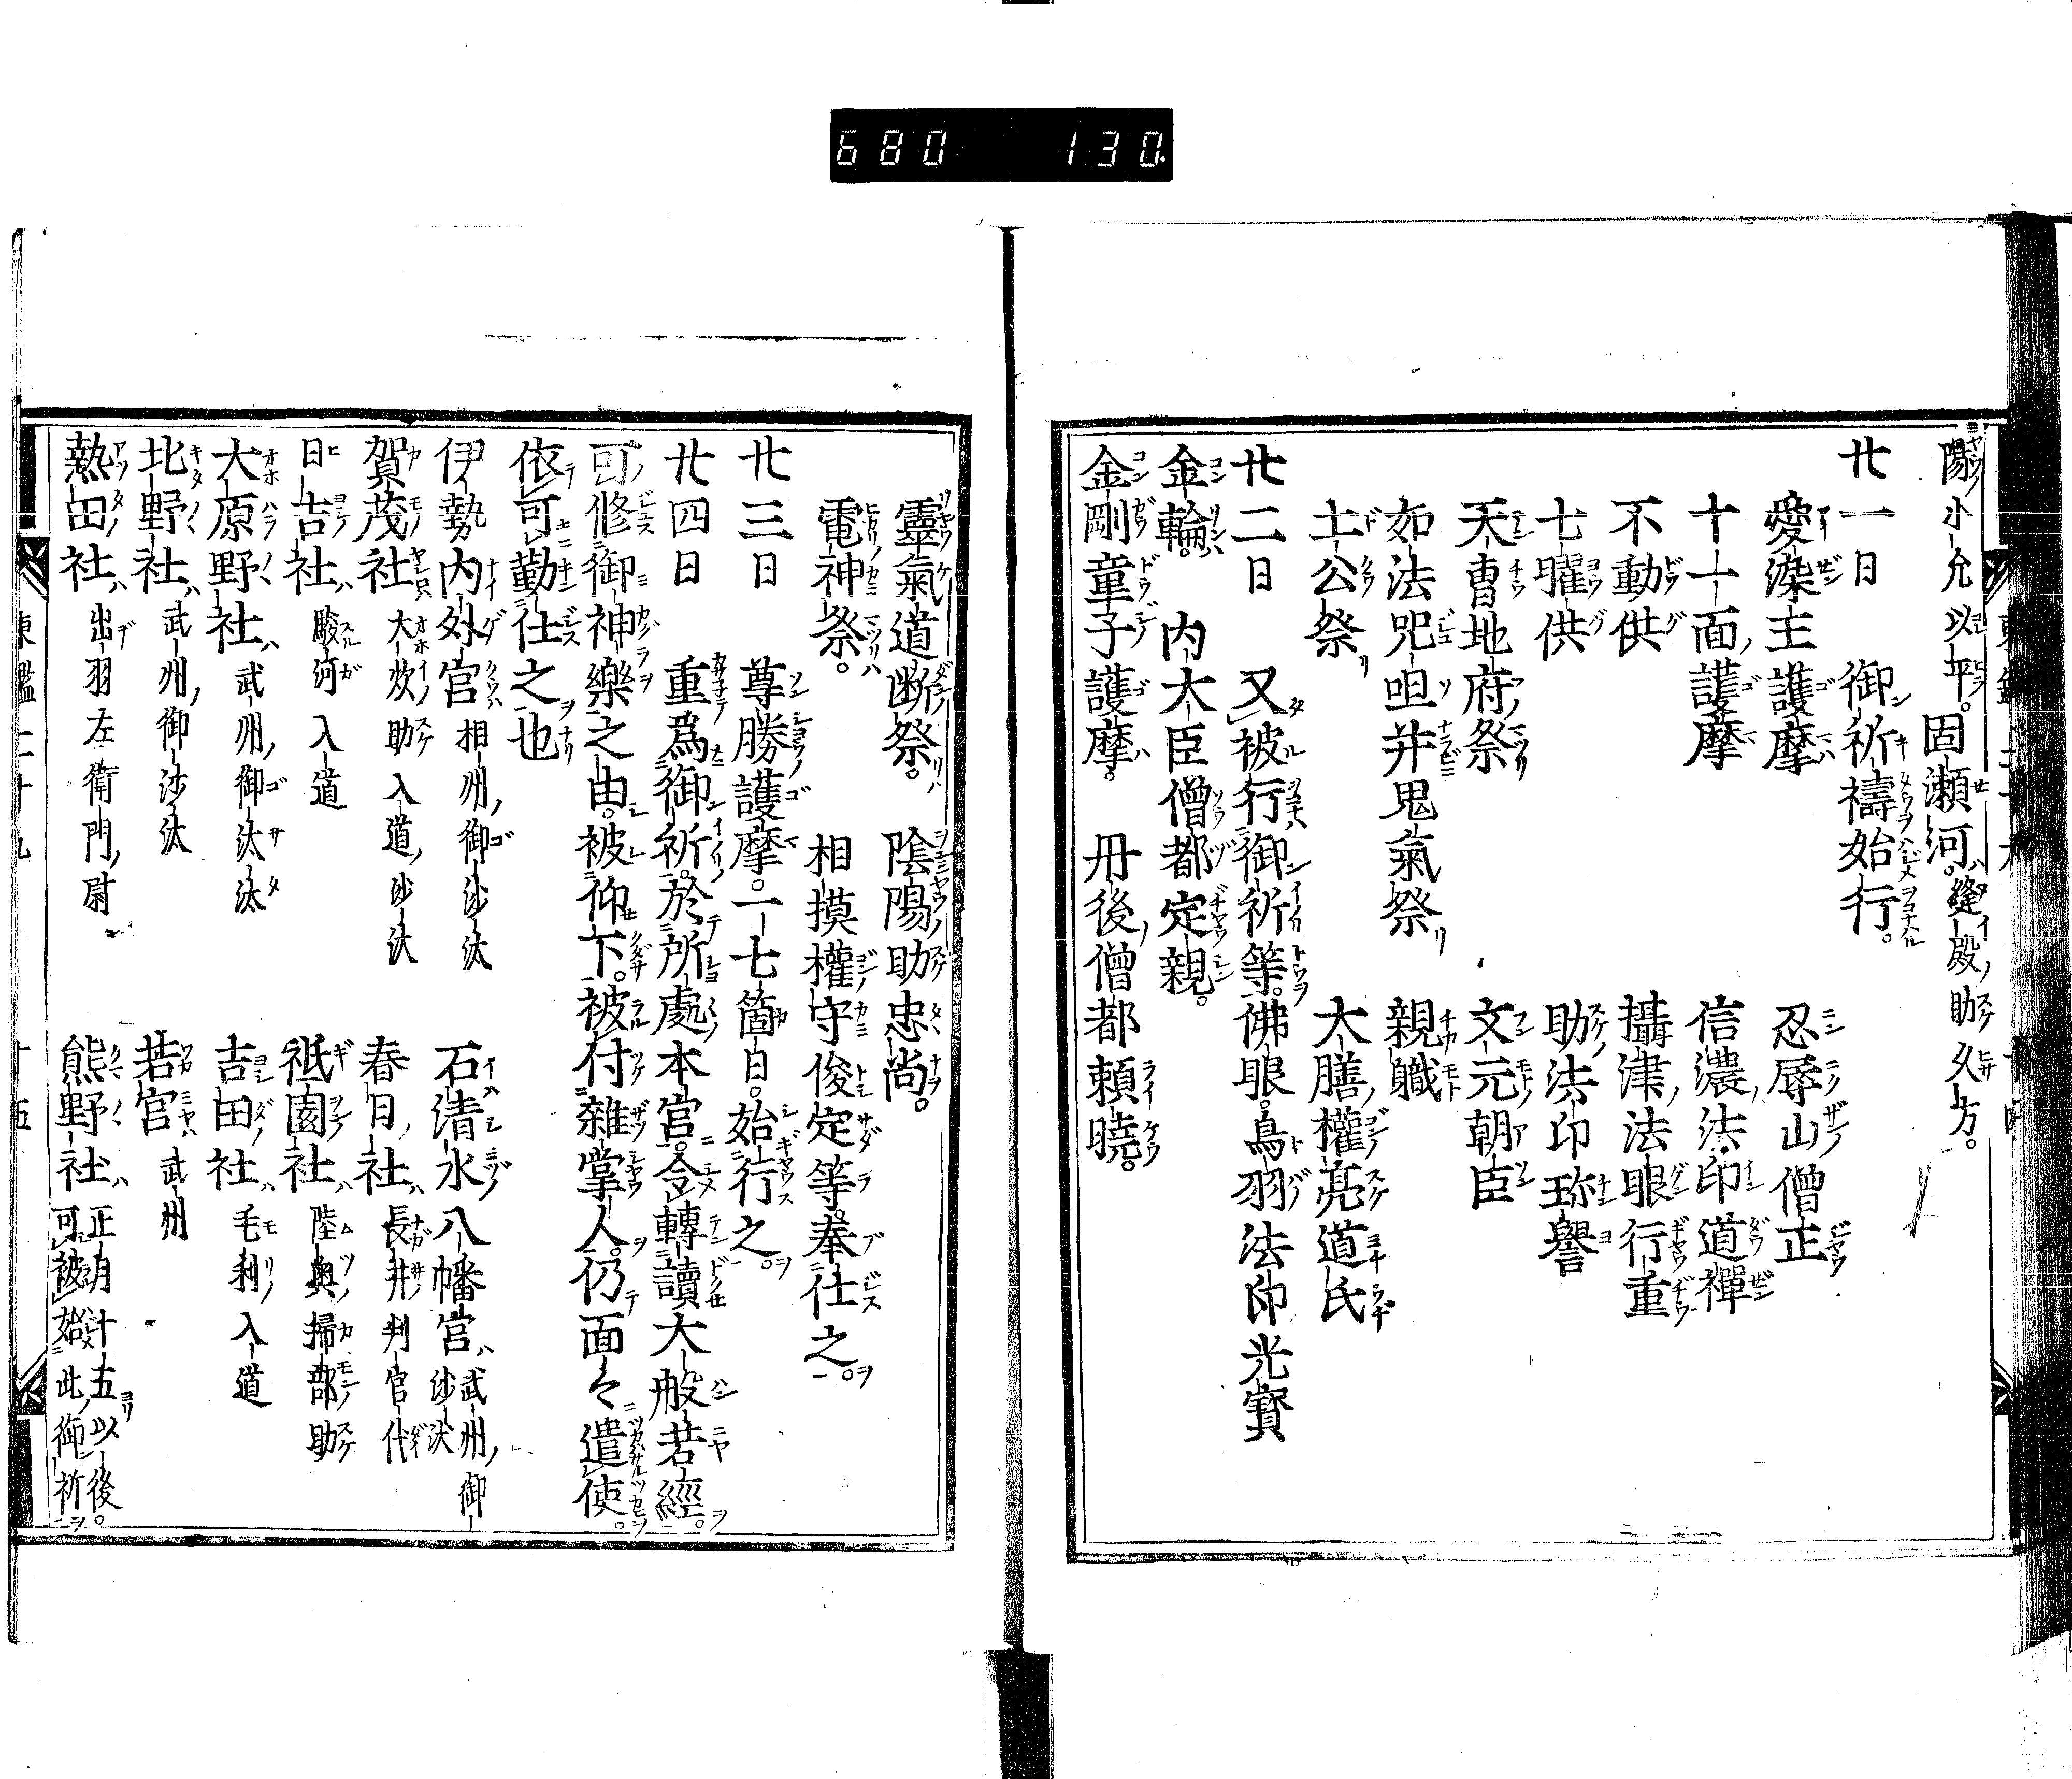 680 130.
陽小允以平。固瀬河。縫殿助久方。
廿一日 御祈禱始行。
愛染王護摩 忍辱山僧正
十一面護摩 信濃法印道禪
不動供 攝津法眼行重
七曜供 助法印珎譽
天曹地府祭 文元朝臣
如法呪咀并鬼氣祭 親職
土公祭 大膳權亮道氏
廿二日 又被行御祈等。佛眼。鳥羽法印光寶
金輪。 内大臣僧都定親。
金剛童子護摩。 丹後僧都頼曉。
靈氣道断祭。 陰陽助忠尚。
電神祭。 相摸權守俊定等。奉仕之。
廿三日 尊勝護摩。一七箇日。始行之。
廿四日 重爲御祈。於所處本宮。令轉讀大般若經。
可修御神樂之由。被仰下。被付雜掌人。仍面々遣使。
依可勤仕之也
伊勢内外宮 相州御沙汰 石清水八幡宮 武州御沙汰
賀茂社 大炊助入道沙汰 春日社 長井判官代
日吉社 駿河入道 祇園社 陸奥掃部助
大原野社 武州御沙汰 吉田社 毛利入道
北野社 武州御沙汰 若宮 武州
熱田社 出羽左衛門尉 熊野社 正月十五以後。可被始此御祈
東鑑二十九 十五